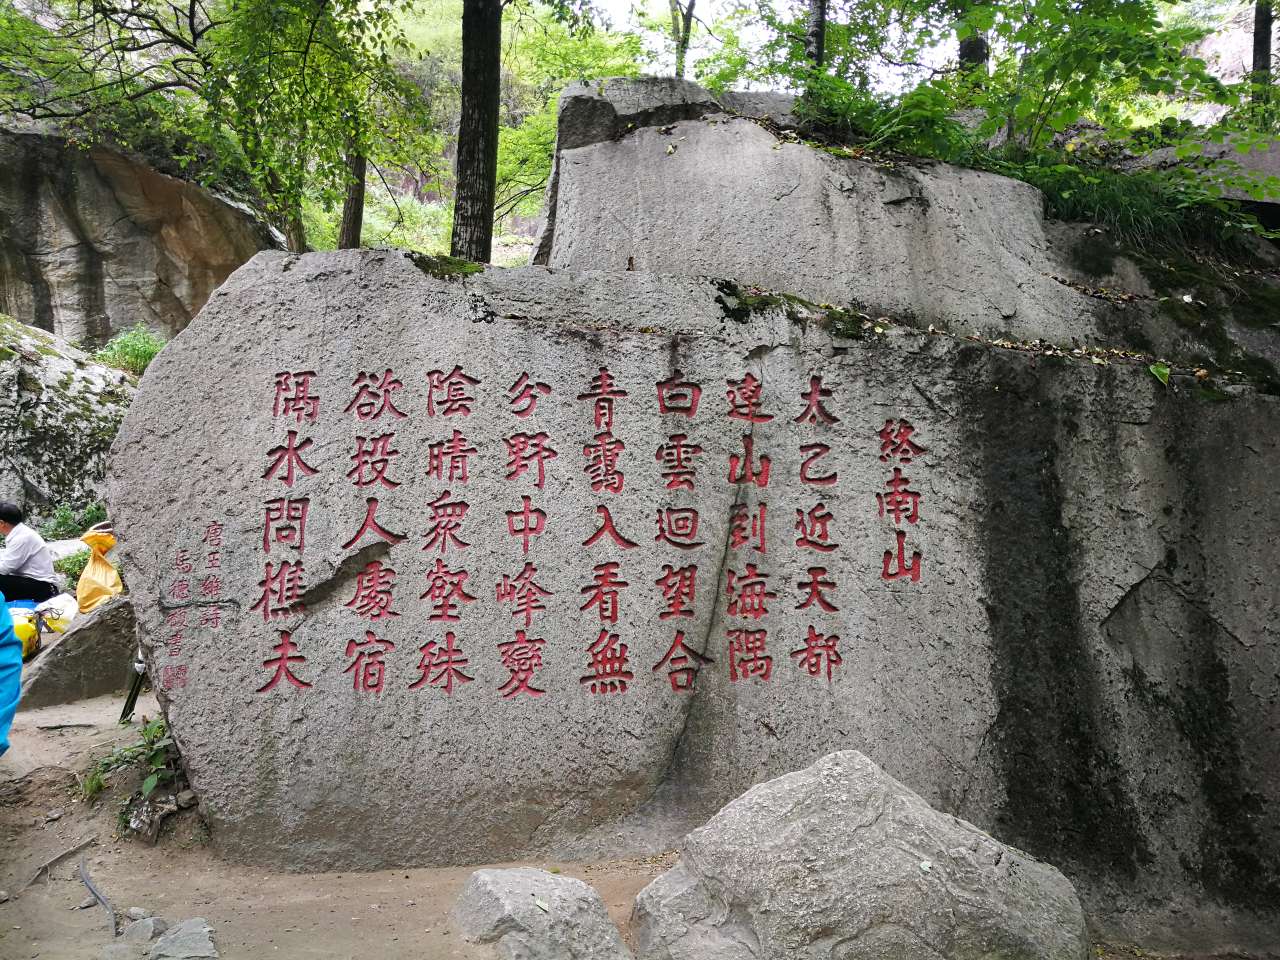 終南山
太乙近天都
連山到海隅
白雲迴望合
青靄入看無
分野中峰變
陰晴衆壑殊
欲投人處宿
隔水問樵夫
唐王維詩